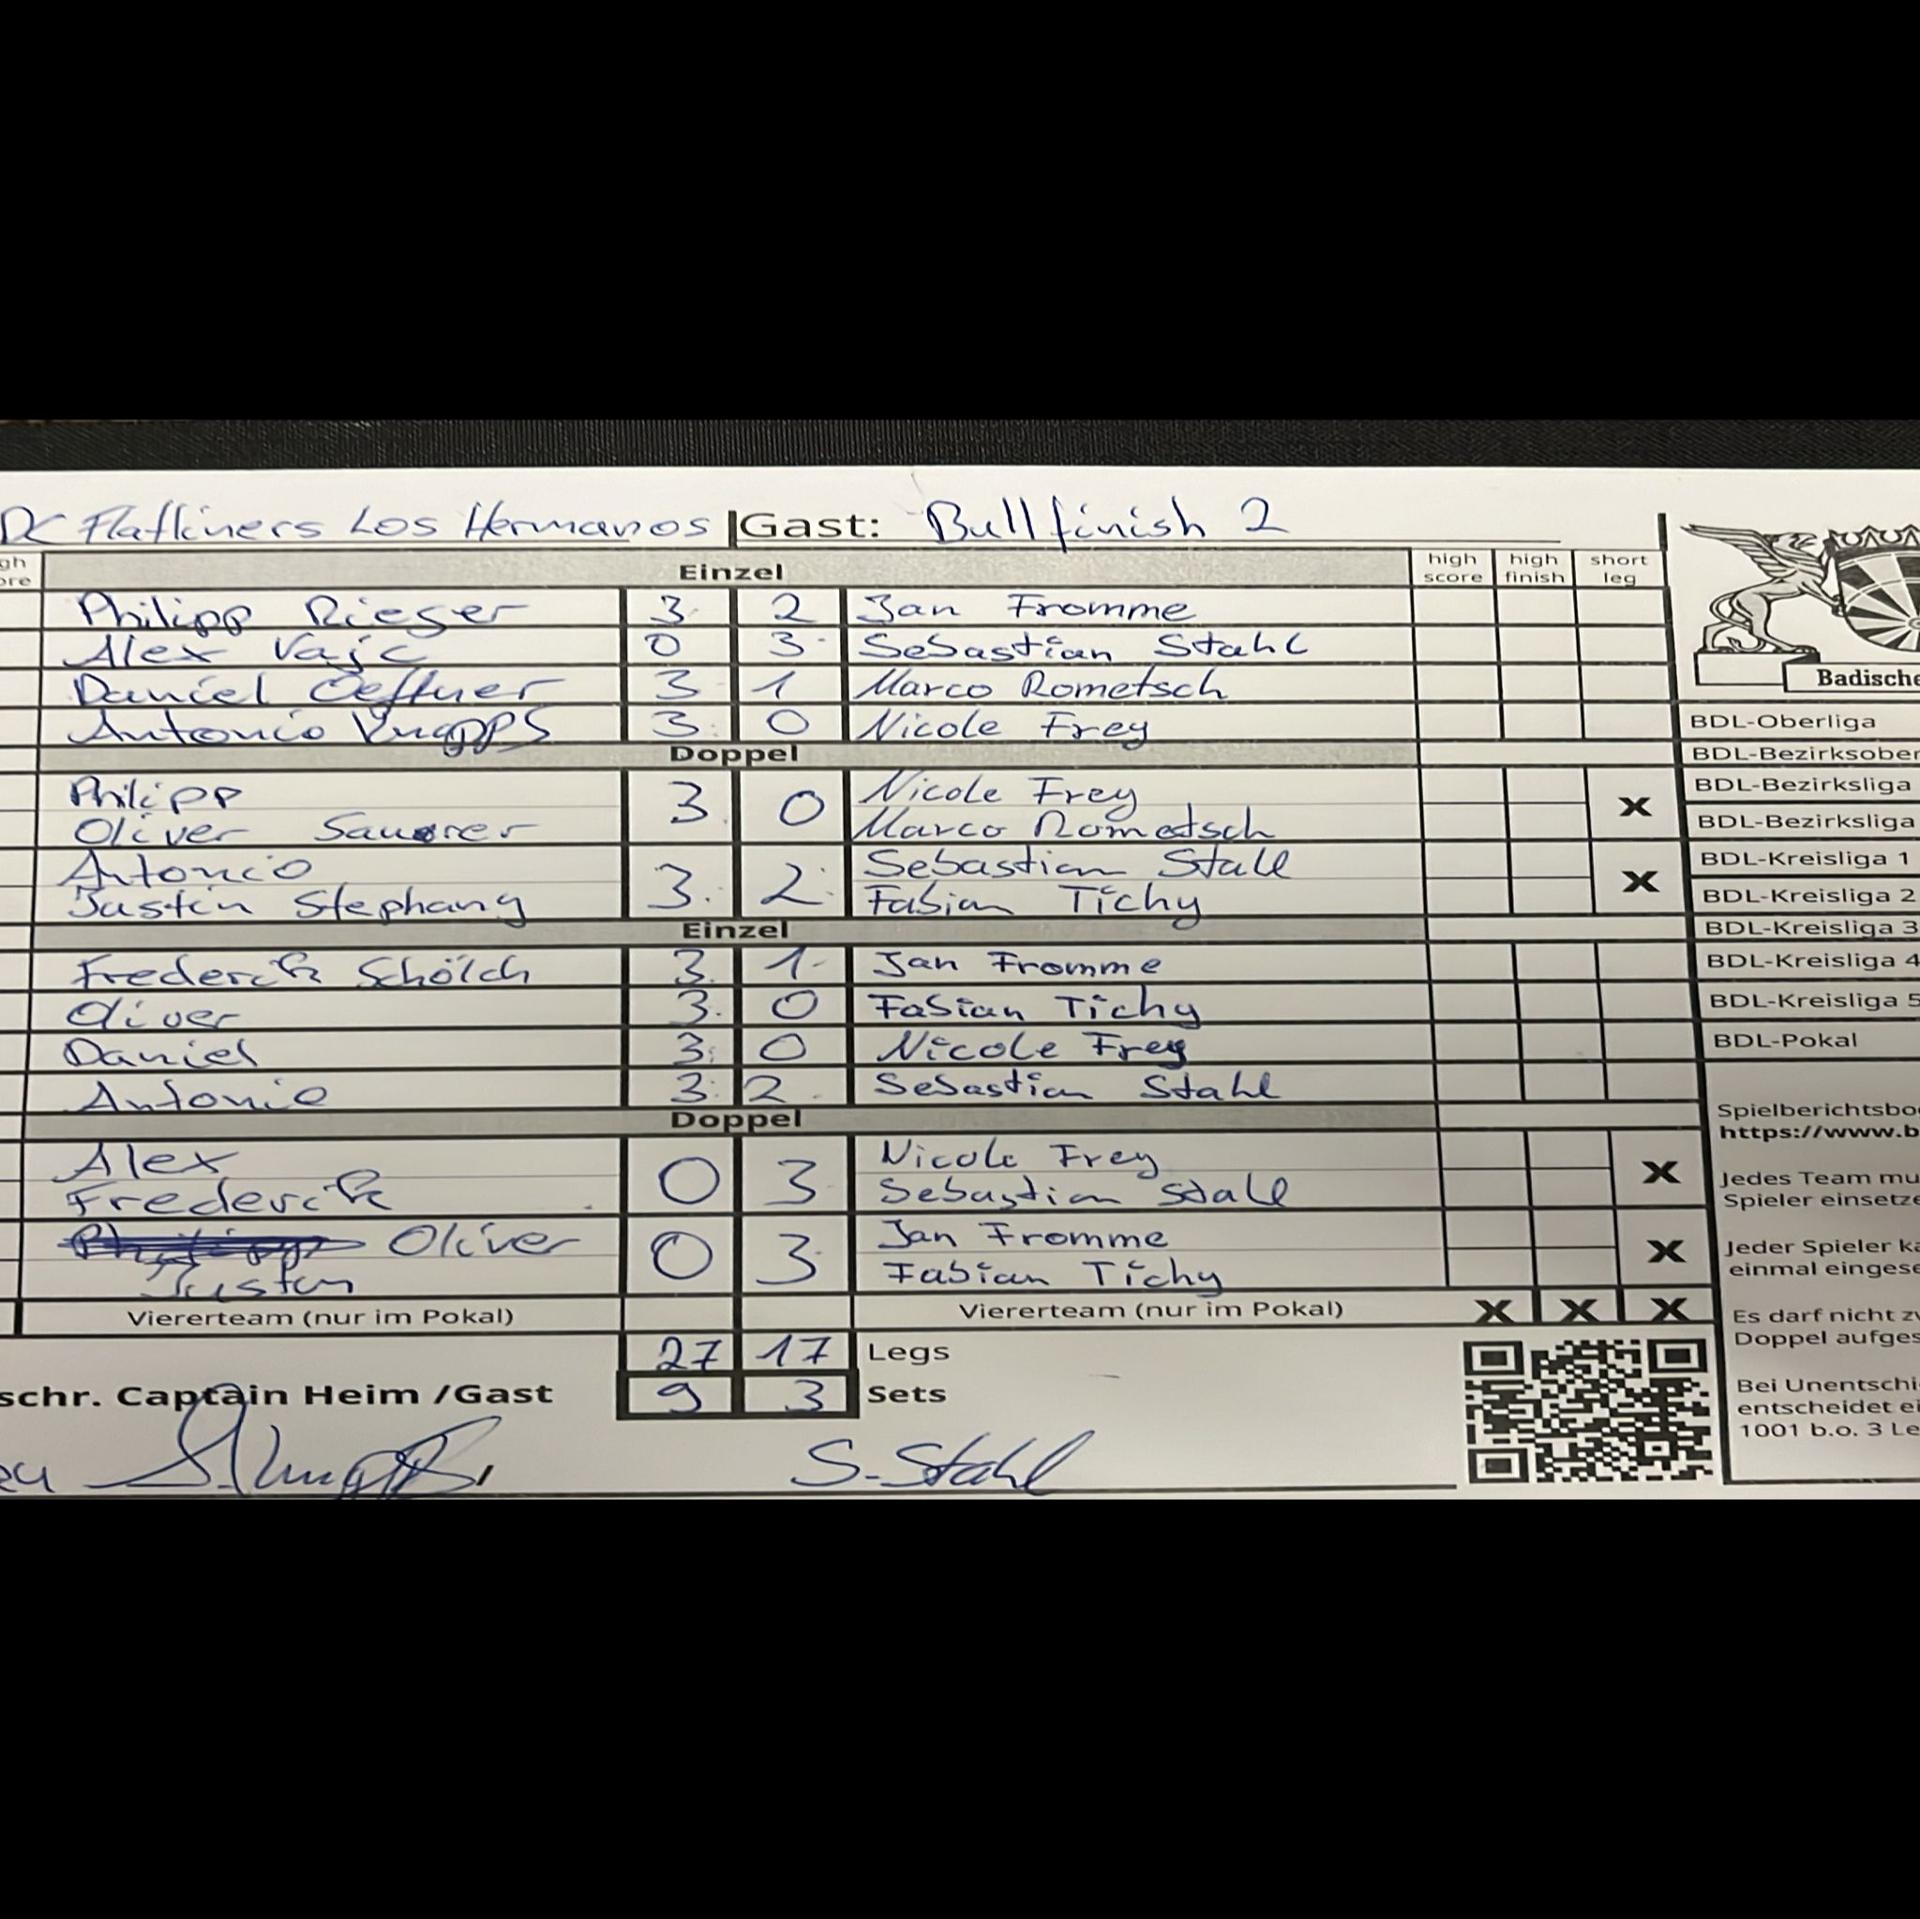 DC Flatliners Los Hermanos Gast: Bullfinish 2
Einzel high score high finish short leg
Philipp Rieger 3 2 Jan Fromme
Alex Vajc 0 3 Sebastian Stahl
Daniel Oeffner 3 1 Marco Rometsch
Antonio Knapps 3 0 Nicole Frey
Doppel
Philipp 3 0 Nicole Frey
Oliver Sauerer Marco Rometsch X
Antonio 3 2 Sebastian Stall
Justin Stephany Fabian Tichy X
Einzel
Frederick Schölch 3 1 Jan Fromme
Oliver 3 0 Fabian Tichy
Daniel 3 0 Nicole Frey
Antonio 3 2 Sebastian Stahl
Doppel
Alex 0 3 Nicole Frey
Frederick Sebastian Stall X
Oliver 0 3 Jan Fromme
Justin Fabian Tichy X
Viererteam (nur im Pokal) Viererteam (nur im Pokal) X X X
27 17 Legs
schr. Captain Heim /Gast 9 3 Sets
S. Stahl
Badische
BDL-Oberliga
BDL-Bezirksober
BDL-Bezirksliga
BDL-Bezirksliga
BDL-Kreisliga 1
BDL-Kreisliga 2
BDL-Kreisliga 3
BDL-Kreisliga 4
BDL-Kreisliga 5
BDL-Pokal
Spielberichtsbo
https://www.b
Jedes Team mu
Spieler einsetze
Jeder Spieler ka
einmal eingese
Es darf nicht zv
Doppel aufges
Bei Unentschi
entscheidet ei
1001 b.o. 3 Le